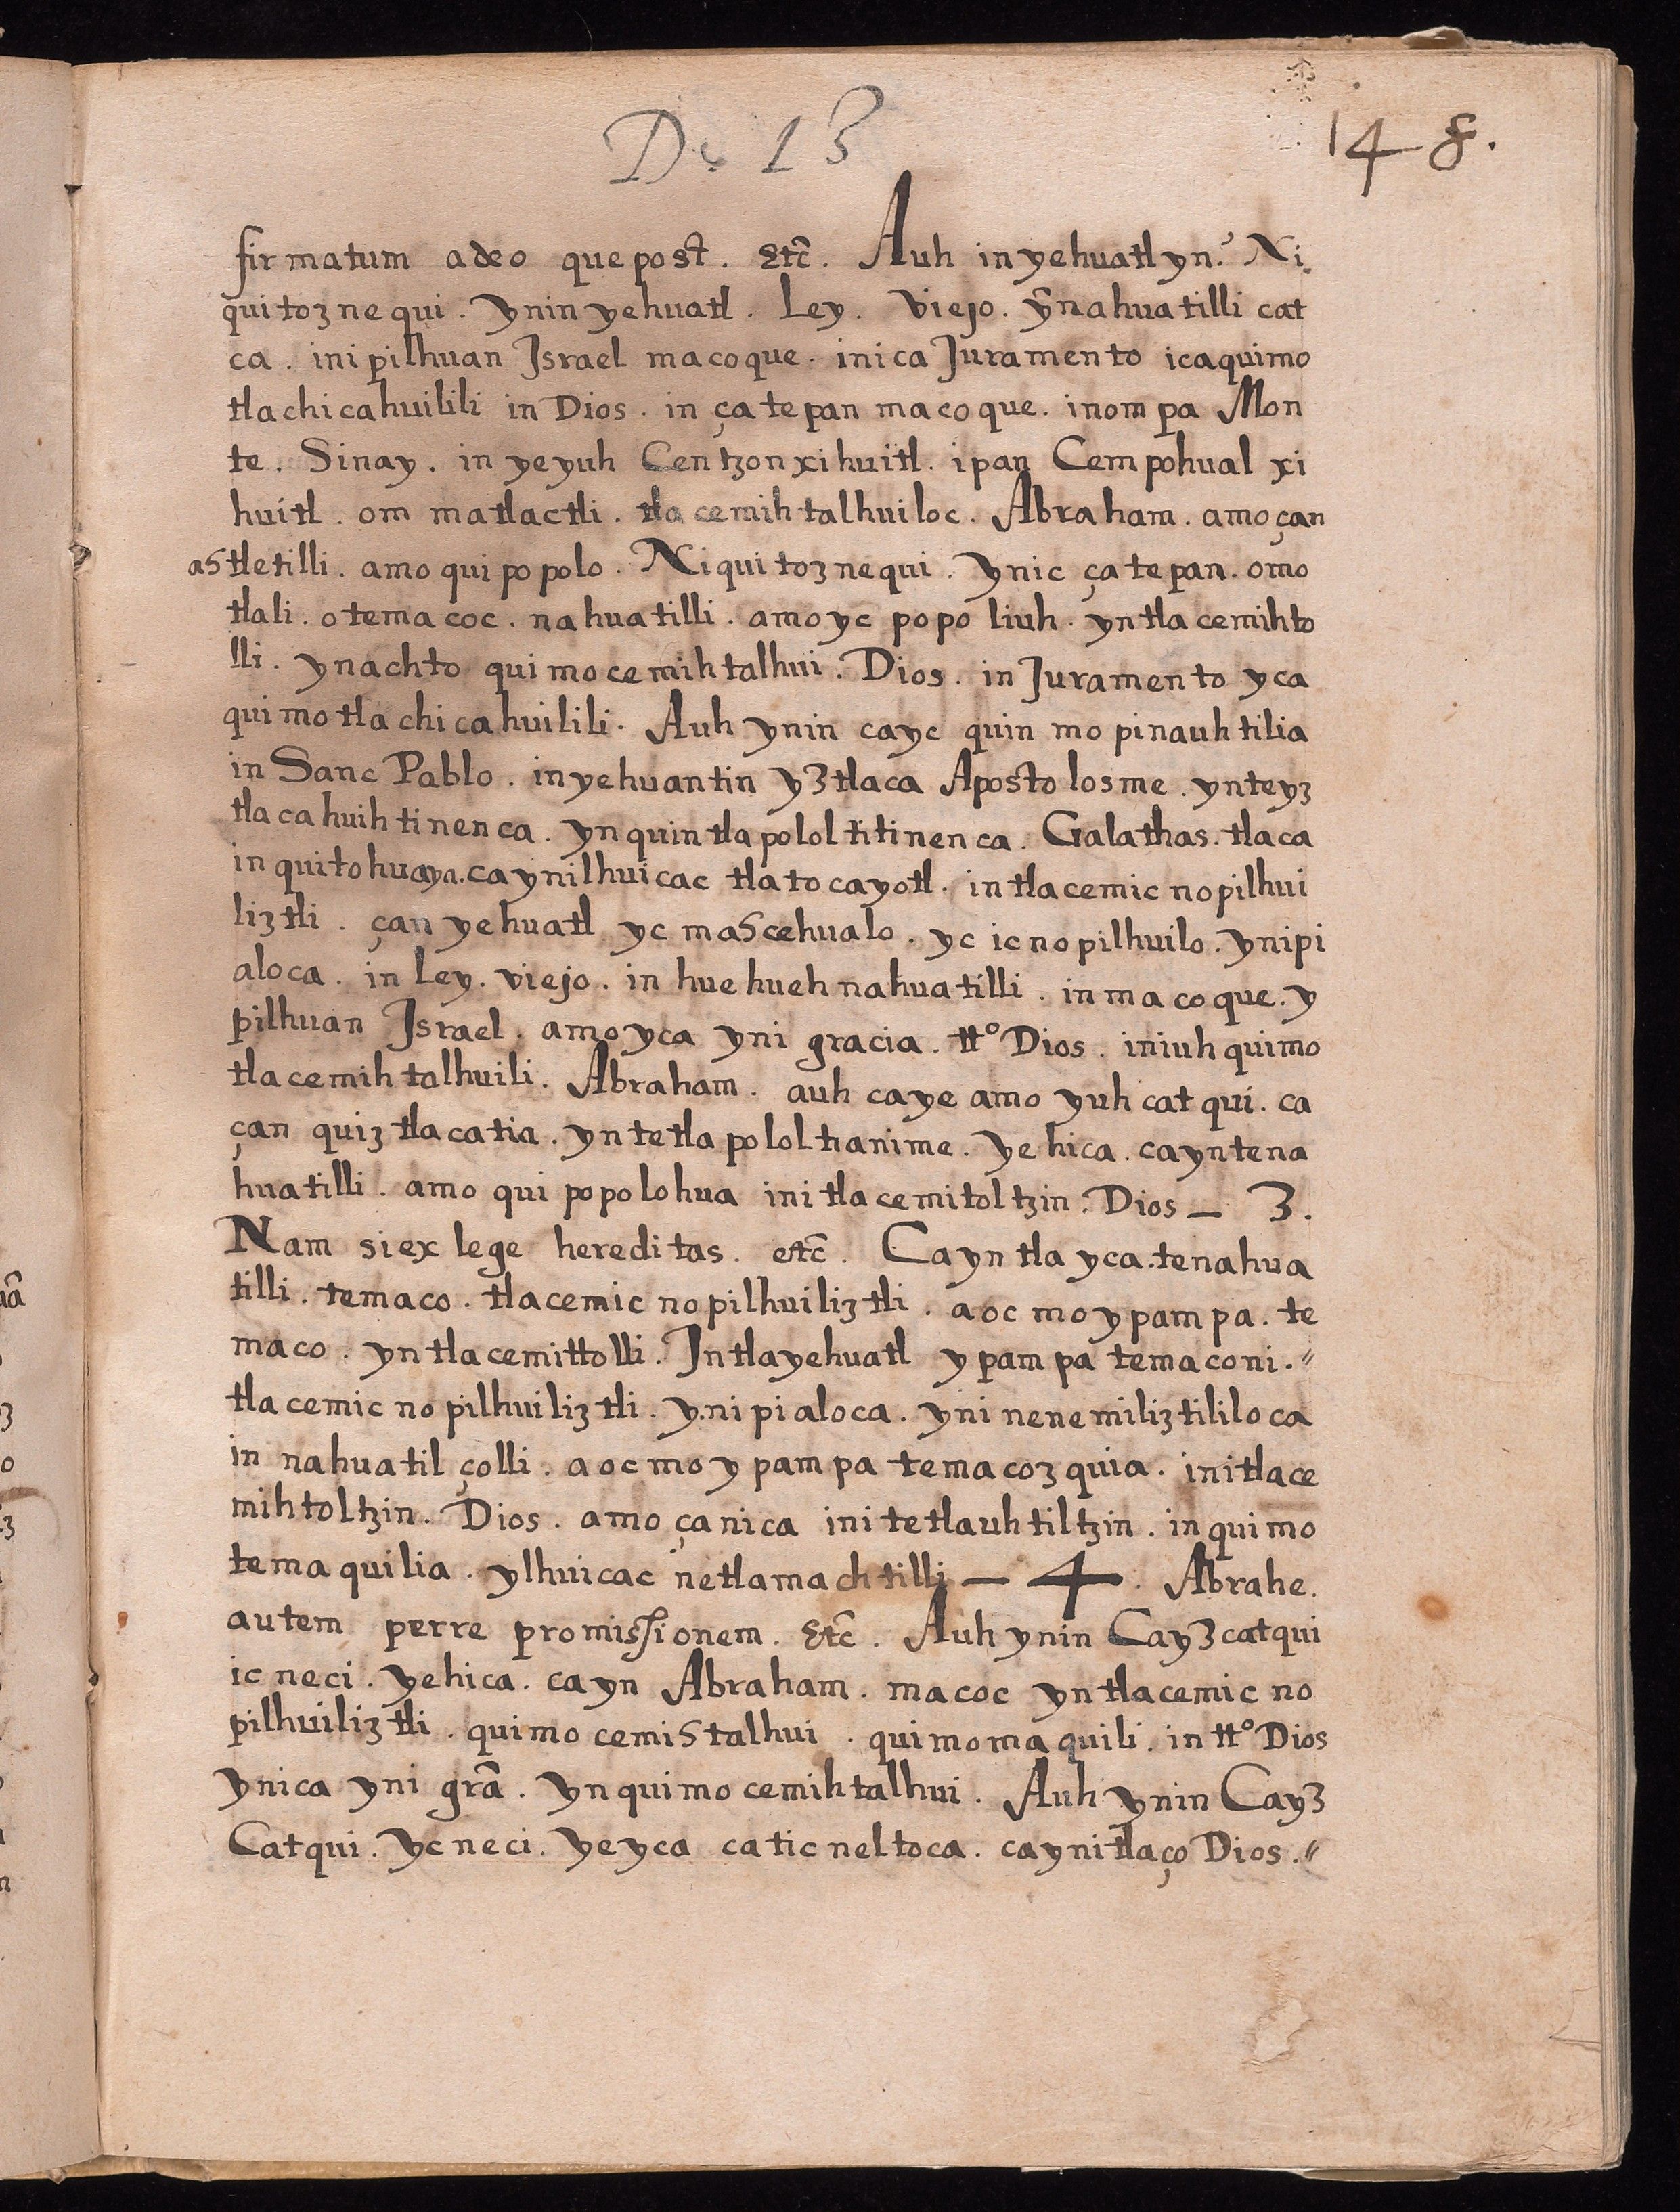 Dc 13
148.
firmatum adeo que post. Etc̃. Auh inyehuatlyn? Ni
quitoz nequi. ynin yehuatl. Ley. viejo. yñahuatilli cat
ca. inipilhuan Israel macoque. inica Juramento icaquimo
tlachicahuilili in Dios. in çatepan macoque. inompa Mon
te. Sinay. in yeyuh Centzonxihuitl. ipan Cempohual xi
huitl. om matlactli. tlacemihtalhuiloc. Abraham. amo çan
astletilli. amo quipopolo. Niquitoznequi. ynic çatepan. omo
tlali. otemacoc. nahuatilli. amo yc popoliuh. yntlacemihto
lli. ynachto quimocemihtalhui. Dios. in Juramento yca
quimotlachicahuilili. Auh ynin cayc quin mopinauhtilia
in Sanc Pablo. inyehuantin yztlaca Apostolosme. ynteyz
tlacahuihtinenca. ynquintlapololtitinenca. Galathas. tlaca
inquitohuaya. caynilhuicac tlatocayotl. intlacemicnopilhui
liztli. çan yehuatl yc mascehualo. yc icnopilhuilo. ynipi
aloca. in Ley. viejo. in huehueh nahuatilli. in macoque. y
pilhuan Israel. amo yca yni gracia. tt° Dios. iniuh quimo
tlacemihtalhuili. Abraham. auh caye amo yuh catqui. ca
çan quiztlacatia. yntetlapololtianime. yehica. cayntena
huatilli. amo quipopolohua initlacemitoltzin. Dios — 3.
Nam siex lege hereditas. etc̃. Cayn tla yca. tenahua
tilli. temaco. tlacemicnopilhuiliztli. aocmo ypampa. te
maco. yntlacemittolli. Intlayehuatl ypampa temaconi.〃
tlacemicnopilhuiliztli. ynipialoca. yninenemiliztililoca
in nahuatilçolli. aocmo ypampa temacozquia. initlace
mihtoltzin. Dios. amo çanica initetlauhtiltzin. inquimo
temaquilia. ylhuicac netlamachtilli — 4. Abrahe.
autem perre promissionem. Etc̃. Auh ynin Cayzcatqui
ic neci. yehica. cayn Abraham. macoc yntlacemicno
pilhuiliztli. quimocemistalhui. quimomaquili. in tt° Dios
ynica yni grã. ynquimocemihtalhui. Auh ynin Cayz
Catqui. yc neci. yeyca catic neltoca. caynitlaço Dios.〃